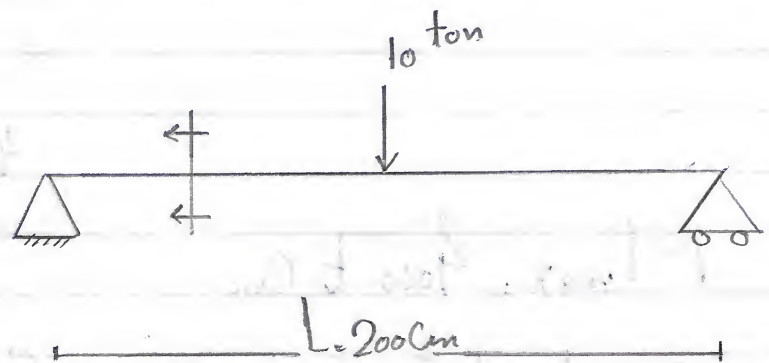 10 ton
L=200Cm